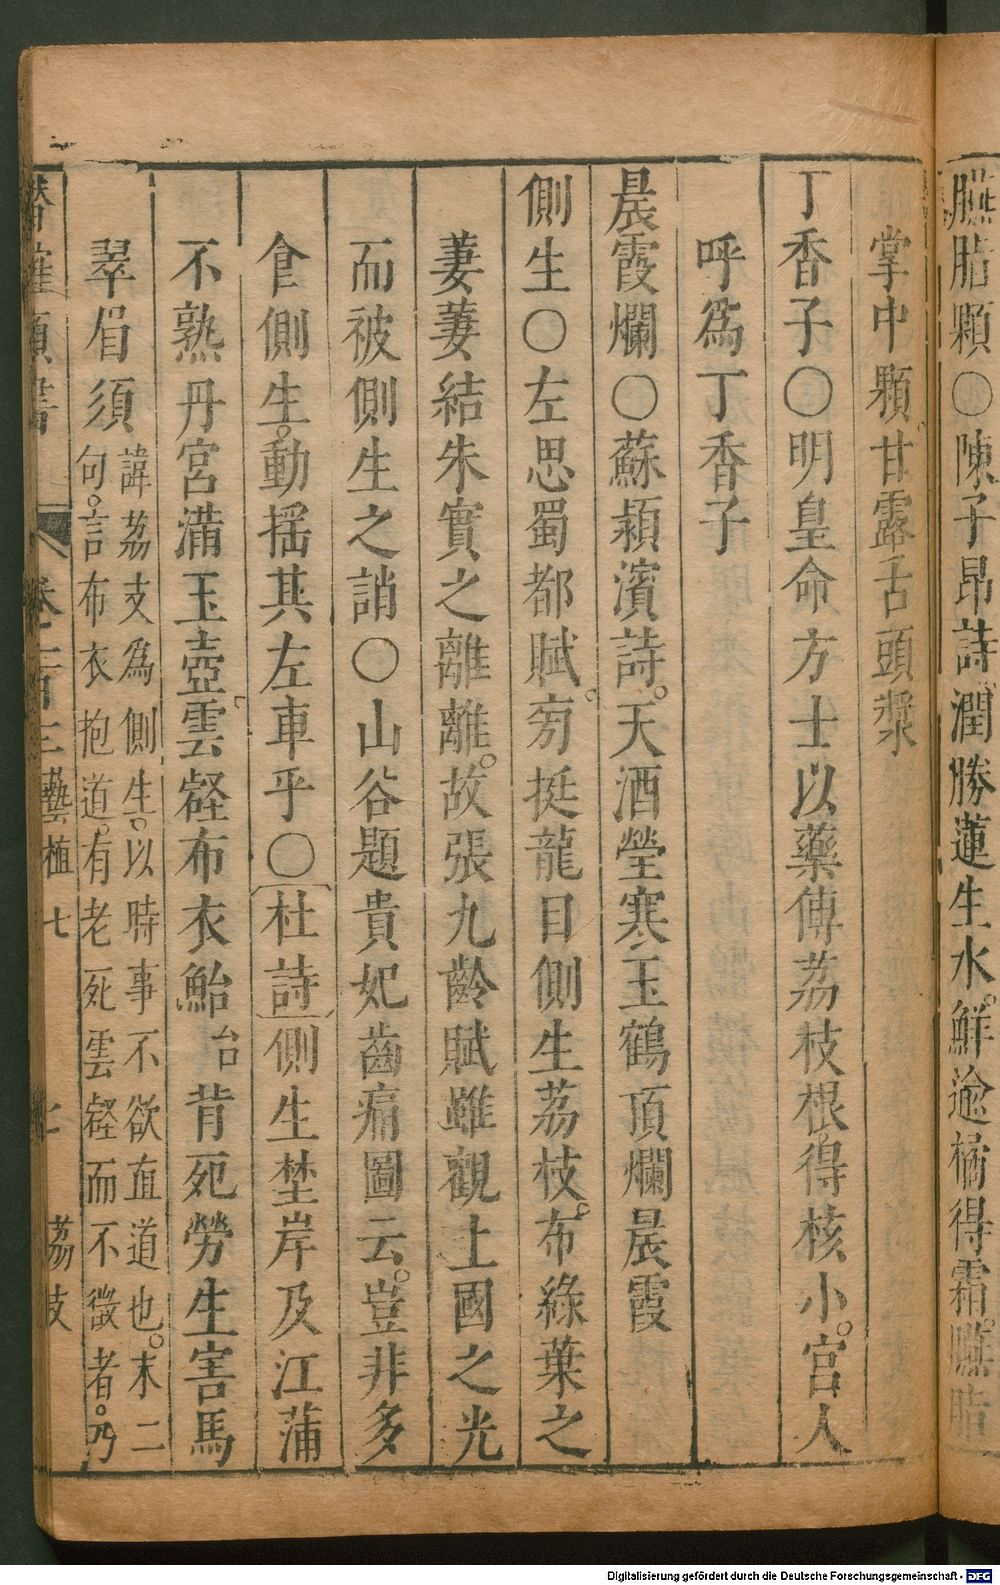 臙脂顆〇陳子昂詩潤勝蓮生水鮮逾橘得霜臙脂
掌中顆甘露舌頭漿
丁香子〇明皇命方士以藥傅荔枝根得核小宮人
呼爲丁香子
晨霞爛〇蘇潁濱詩天酒瑩寒玉鶴頂爛晨霞
側生〇左思蜀都賦㫄挺龍目側生荔枝布綠葉之
萋萋結朱實之離離故張九齡賦雖觀上國之光
而被側生之誚〇山谷題貴妃齒痛圖云豈非多
食側生動搖其左車乎〇杜詩側生埜岸及江蒲
不熟丹宮滿玉壺雲壑布衣鮐台背死勞生害馬
翠眉須諱荔支爲側生以時事不欲直道也末二
句言布衣抱道有老死雲壑而不徵者乃
潛確類書 卷一百三 藝植七 七 荔枝
Digitalisierung gefördert durch die Deutsche Forschungsgemeinschaft - DFG